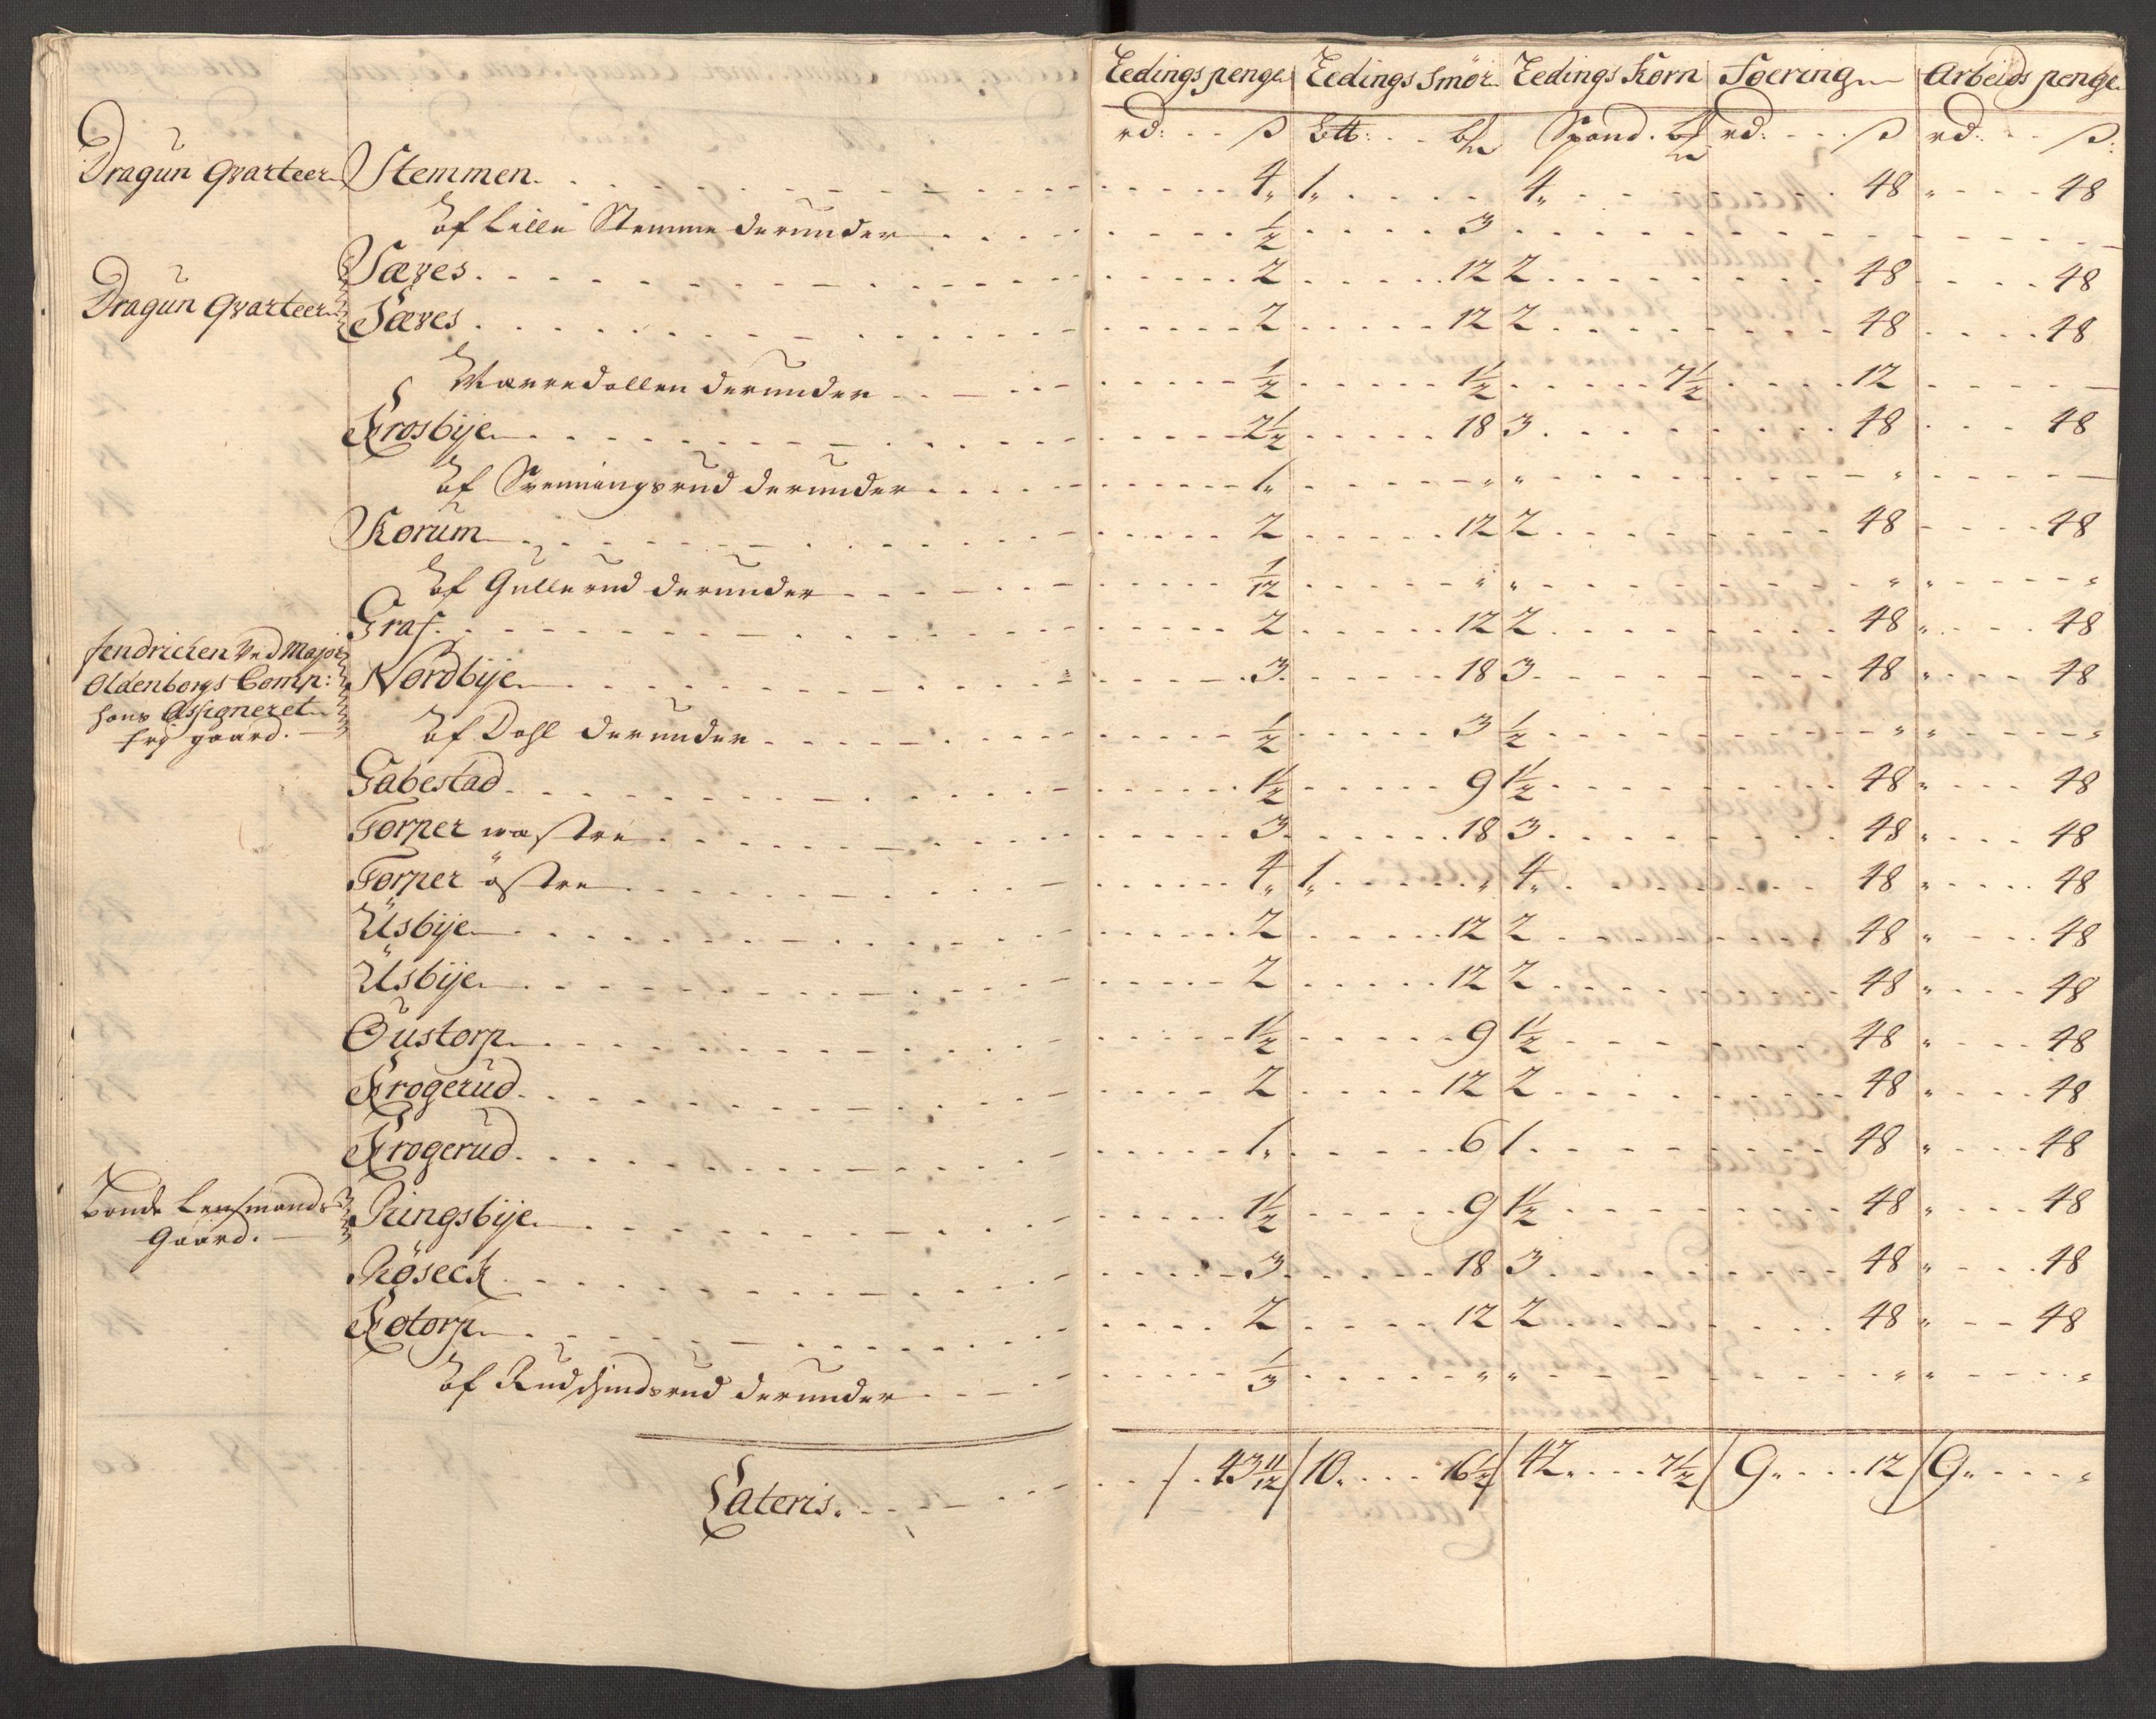 Leedings penge Leedings Smör Leedings Korn Foering Arbeids penge
rd: ß Ltt: Spand. rd. ß rd. ß:
Dragun Qvarteer Stemmen 4 1 4 48 48
Af Lille Stemme derunder ½ 3
Sæves 2 12 2 48 48
Dragun Qvarteer Sæves 2 12 2 48 48
derunder ½ 1½ 7½ 12
Krosbije 2½ 18 3 48 48
Af Svenningsrud derunder 1
Korum 2 12 2 48 48
Af Gullerud derunder 1/12
Graf 2 12 2 48 48
fendrichen Ved Major
Oldenborgs Comp: Nordbije 3 18 3 48 48
hans Assigneret
frj gaard. Af Dahl derunder ½ 3 ½
Gabestad 1½ 9 1½ 48 48
Torper wastre 3 18 3 48 48
Torper östre 4 1 4 48 48
Üsbije 2 12 2 48 48
Üsbije 2 12 2 48 48
Öustorp 1½ 9 1½ 48 48
Krogerud 2 12 2 48 48
Krogerud 1 6 1 48 48
Bonde Lensmands Ringsbije 1½ 9 1½ 48 48
Gaard.
Röseck 3 18 3 48 48
Kotorp 2 12 2 48 48
Af derunder ⅓
Lateris. 43 11/12 10 16½ 42 7½ 9 12 9